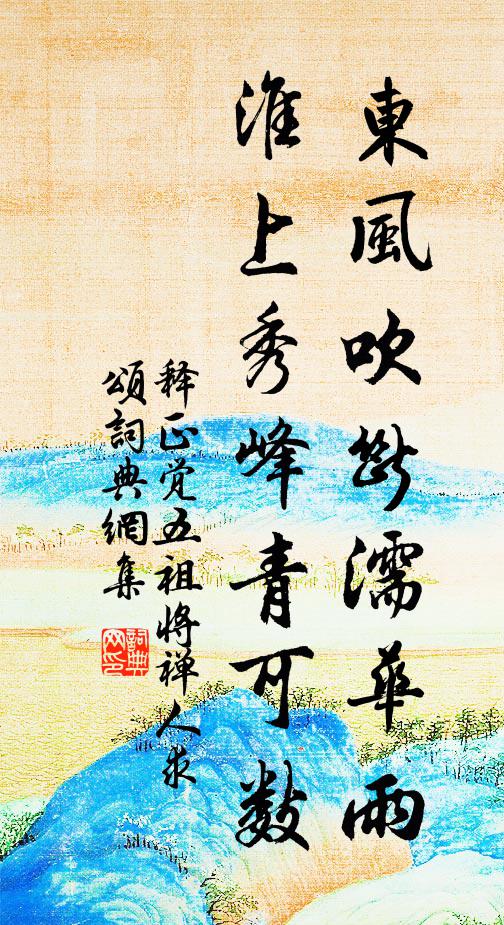 東風吹斷濡華雨
淮上秀峰青可数
释正觉五祖将禅人求
頌詞典網集
詞典网印